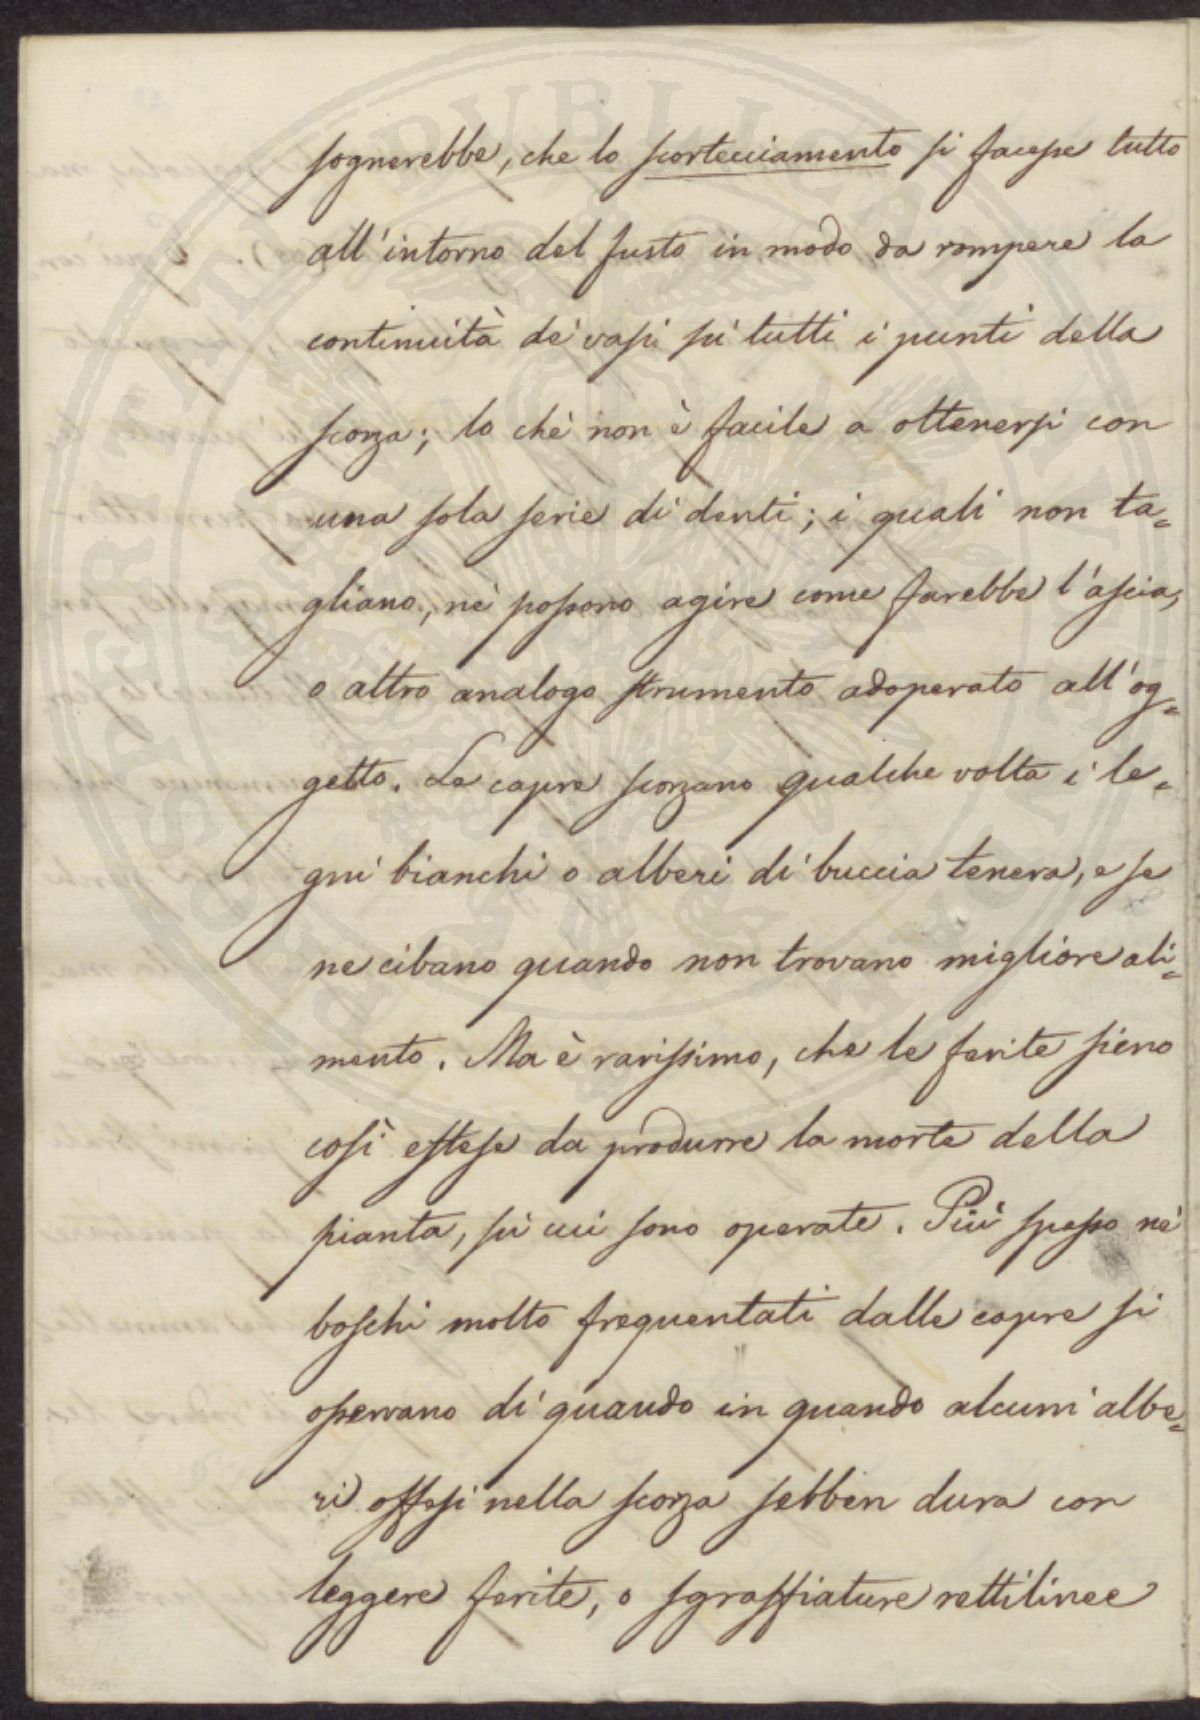 sognerebbe, che lo scortecciamento si facesse tutto
all'intorno del fusto in modo da rompere la
continuità de' vasi sù tutti i punti della
scorza; lo chè non è facile a ottenersi con
una sola serie di denti; i quali non ta=
gliano, nè possono agire come farebbe l'ascia,
o altro analogo strumento adoperato all'og=
getto. Le capre scorzano qualche volta i le=
gni bianchi o alberi di buccia tenera, e se
ne cibano quando non trovano migliore ali=
mento. Ma è rarissimo, che le ferite sieno
così estese da produrre la morte della
pianta, sù cui sono operate. Più spesso nè
boschi molto frequentati dalle capre si
osservano di quando in quando alcuni albe=
ri offesi nella scorza sebben dura con
leggere ferite, o sgraffiature rettilinee